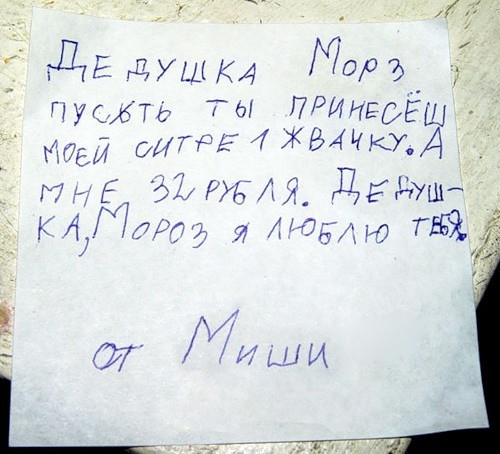 Дедушка Морз
пусять ты принесёш
моей ситре 1 жвачку. А
мне 32 рубля. Дедуш-
ка, Мороз я люблю тебя.
от Миши